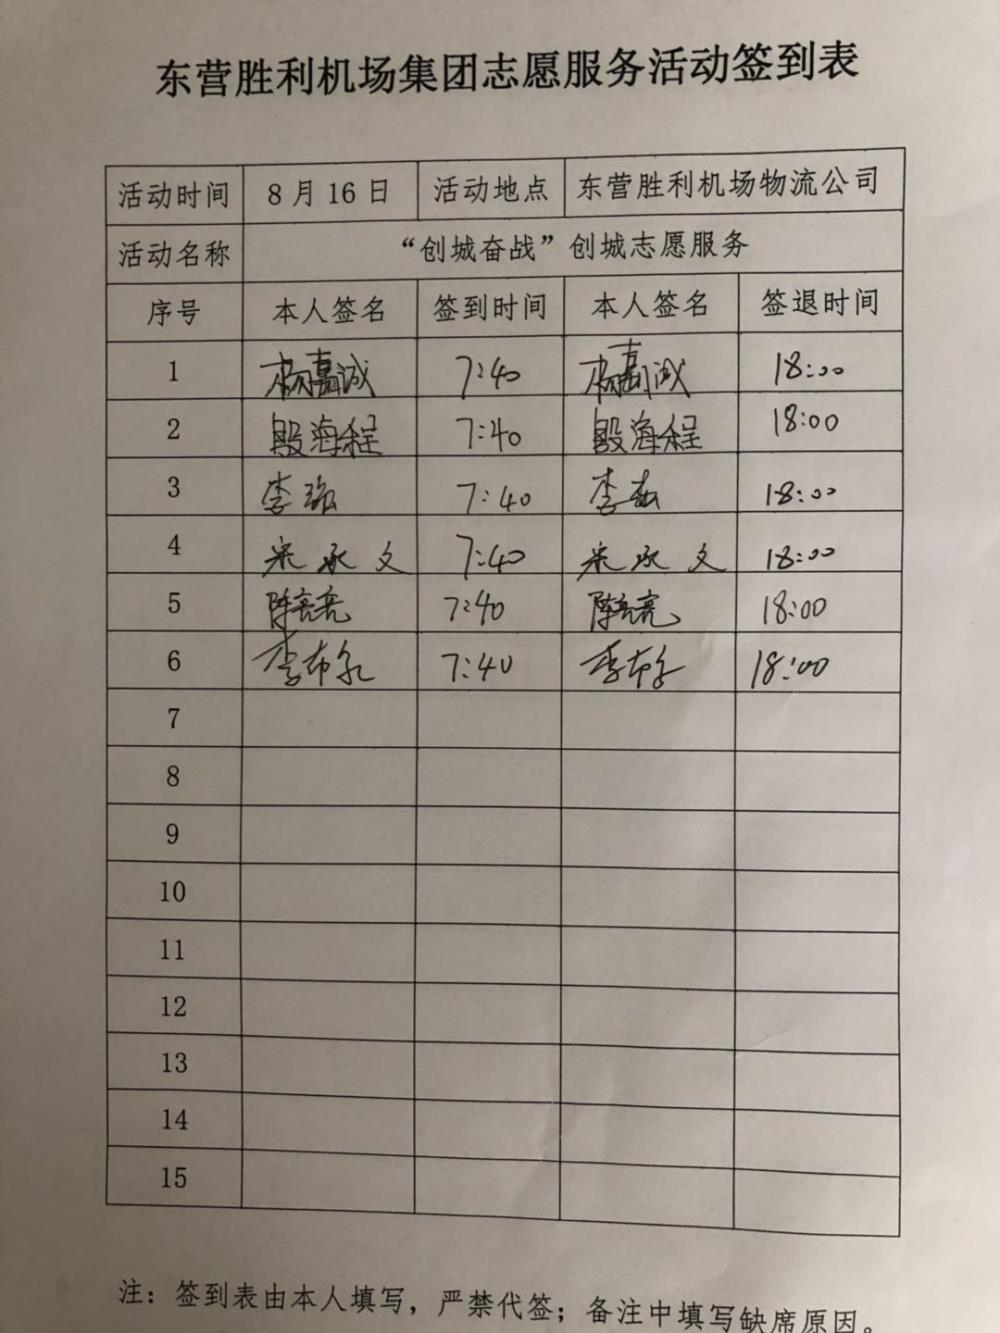 东营胜利机场集团志愿服务活动签到表
活动时间 8月16日 活动地点 东营胜利机场物流公司
活动名称 “创城奋战”创城志愿服务
序号 本人签名 签到时间 本人签名 签退时间
1 杨嘉诚 7:40 杨嘉诚 18:00
2 殷海程 7:40 殷海程 18:00
3 李 7:40 李 18:00
4 宋承文 7:40 宋承文 18:00
5 陈亮亮 7:40 陈亮亮 18:00
6 李 7:40 李 18:00
7
8
9
10
11
12
13
14
15
注：签到表由本人填写，严禁代签；备注中填写缺席原因。